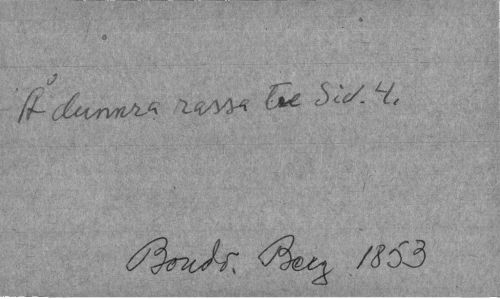 Å dunnra rassa te Sid. 4.
Bouds. Berg 1853